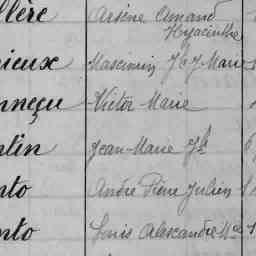 llère Arsène Amand
Hyacinthe
rieux Maximin Jh Marie
nneçu Victor Marie
ntin Jean-Marie Jh
nto André Pierre Julien
nto Louis Alexandre Mie